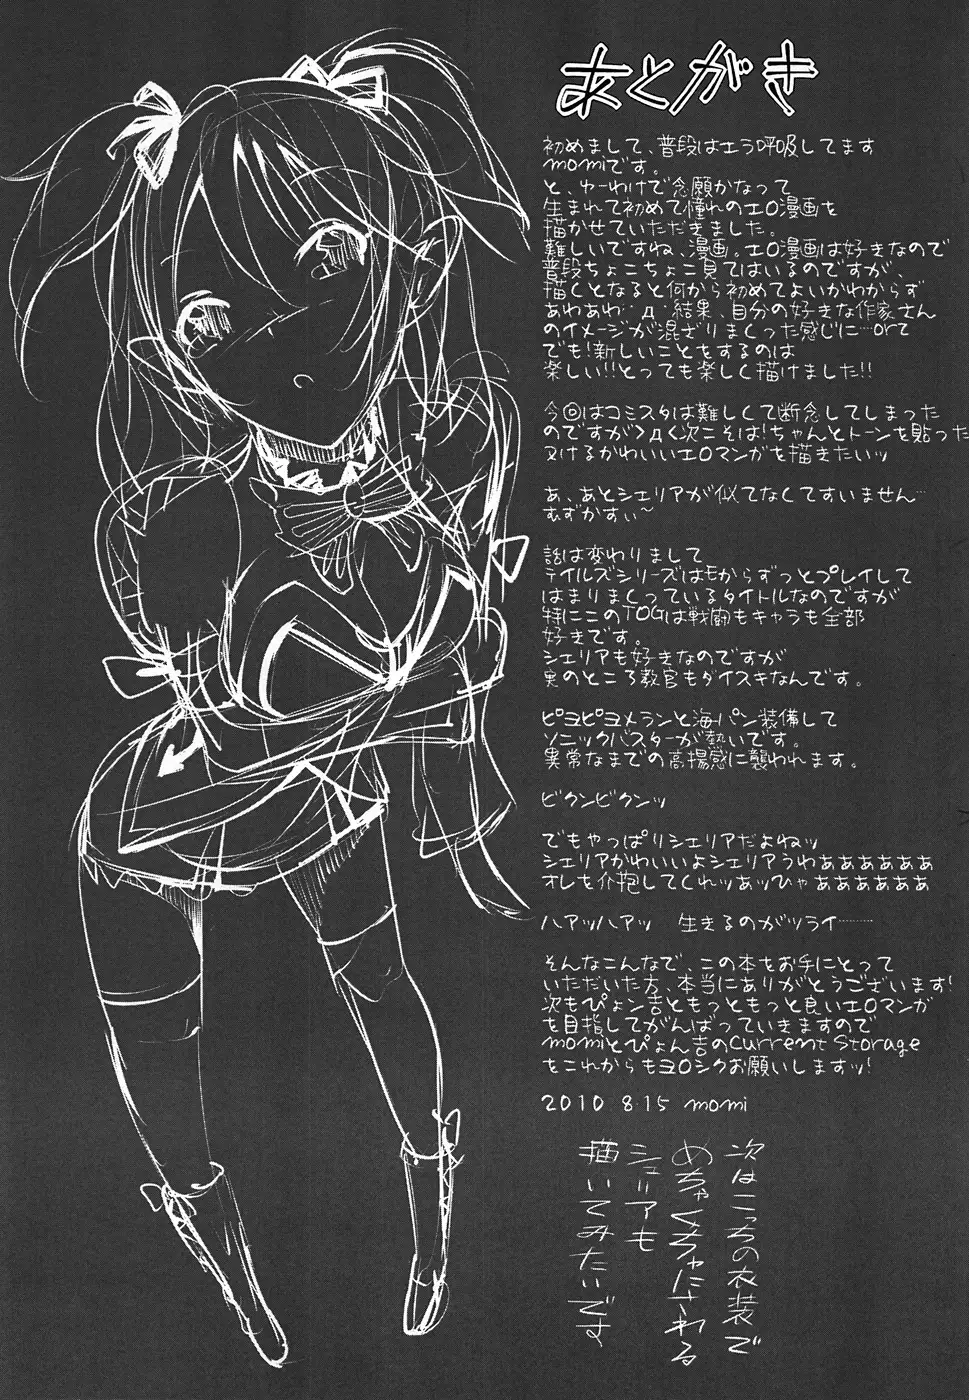 あとがき
初めまして、普段はエラ呼吸してます
momiです。
と、ゆーわけで念願かなって
生まれて初めて憧れのエロ漫画を
描かせていただきました。
難しいですね、漫画。エロ漫画は好きなので
普段ちょこちょこ見てはいるのですが、
描くとなると何から初めてよいかわからず
あわあわ…д 結果、自分の好きな作家さん
のイメージが混ざりまくった感じに…orz
でも！新しいことをするのは
楽しい!!とっても楽しく描けました!!
今回はコミスタは難しくて断念してしまった
のですが>д<次こそは！ちゃんとトーンを貼った
ヌけるかわいいエロマンガを描きたいッ
あ、あとシェリアが似てなくてすいません…
むずかすぃ～
話は変わりまして
テイルズシリーズはEからずっとプレイして
はまりまくっているタイトルなのですが
特にこのTOGは戦闘もキャラも全部
好きです。
シェリアも好きなのですが
実のところ教官もダイスキなんです。
ピヨピヨメランと海パン装備して
ソニックバスターが熱いです。
異常なまでの高揚感に襲われます。
ビクンビクンッ
でもやっぱりシェリアだよねッ
シェリアかわいいよシェリアうわぁぁぁぁぁぁ
オレを介抱してくれッあッひゃぁぁぁぁぁぁ
ハアッハアッ 生きるのがツライ………
そんなこんなで、この本をお手にとって
いただいた方、本当にありがとうございます！
次もぴょン吉ともっともっと良いエロマンガ
を目指してがんばっていきますので
momiとぴょん吉のCurrent Storage
をこれからもヨロシクお願いしますッ！
2010 8.15 momi
次はこっちの衣装で
めちゃくちゃにされる
シェリアも
描いてみたいです